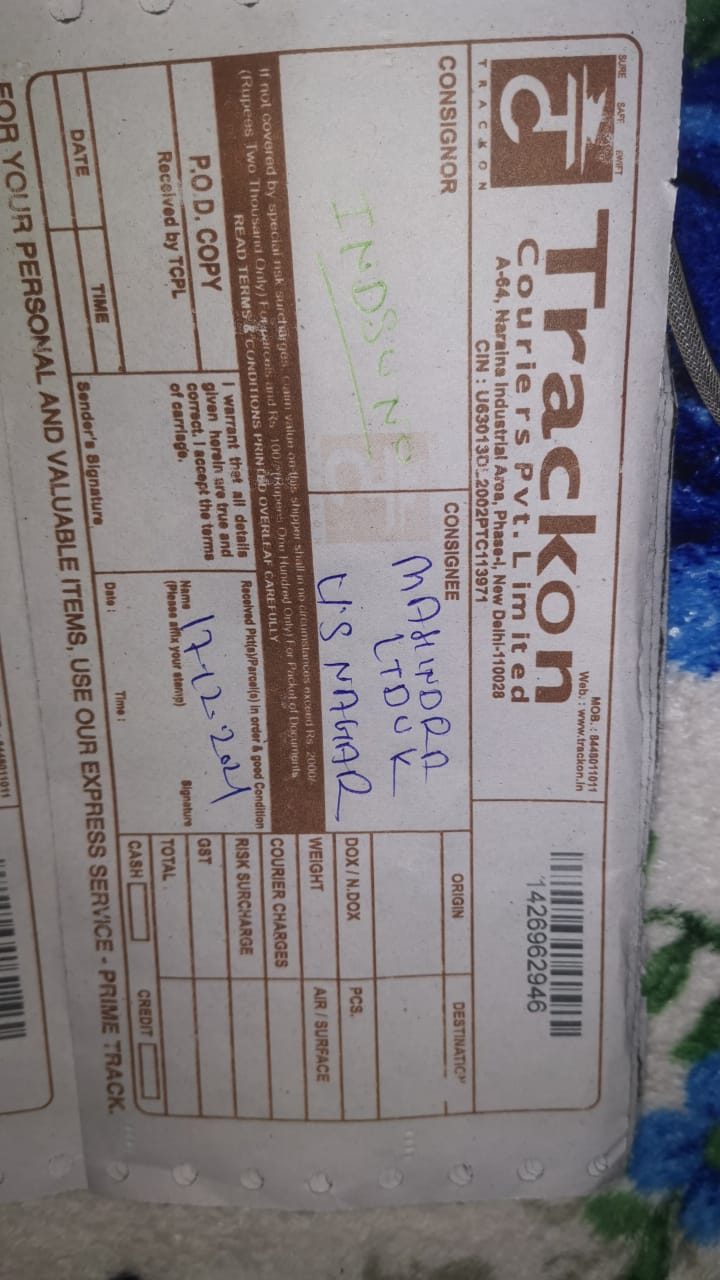 SURE SAFE SWIFT
TRACKON
Trackon
Couriers Pvt. Limited
A-64, Naraina Industrial Area, Phase-I, New Delhi-110028
CIN : U63013DL2002PTC113971
MOB.: 8448011011
Web. : www.trackon.in
1426962946
CONSIGNOR
INDSUND
CONSIGNEE
MAHINDRA
LTD UK
U'S NAGAR
ORIGIN
DESTINATION
DOX / N.DOX
PCS.
WEIGHT
AIR / SURFACE
COURIER CHARGES
RISK SURCHARGE
GST
TOTAL
CASH
CREDIT
If not covered by special risk surcharges, claim value on this shipper shall in no circumstances exceed Rs. 2000/-
(Rupees Two Thousand Only) For parcels and Rs. 100/- (Rupees One Hundred Only) For Packet of Documents
READ TERMS & CONDITIONS PRINTED OVERLEAF CAREFULLY
P.O.D. COPY
Received by TCPL
DATE
TIME
I warrant that all details
given herein are true and
correct. I accept the terms
of carriage.
Sender's Signature
Received Pkt(s)/Parcel(s) in order & good Condition
Name
Signature
(Please affix your stamp)
17-12-2021
Date :
Time :
FOR YOUR PERSONAL AND VALUABLE ITEMS, USE OUR EXPRESS SERVICE - PRIME TRACK.
8448011011